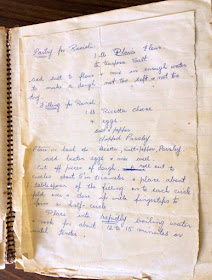 Pastry for Ravioli
1 lb Plain Flour
½ teaspoon Salt
Add salt to flour & mix in enough water
to make a dough not too soft & not too
dry.
Filling for Ravioli
1 lb Ricotta cheese
4 eggs
Salt & pepper
chopped Parsley
Place in bowl the Ricotta, Salt & Pepper, Parsley,
add beaten eggs & mix well.
Cut off pieces of dough & roll out to
circles about 5 in diameter & place about
tablespoon of the filling on to each circle
fold over & close up with fingertips to
form a half circle.
Place into rapidly boiling water
& cook for about 12 to 15 minutes or
until tender.